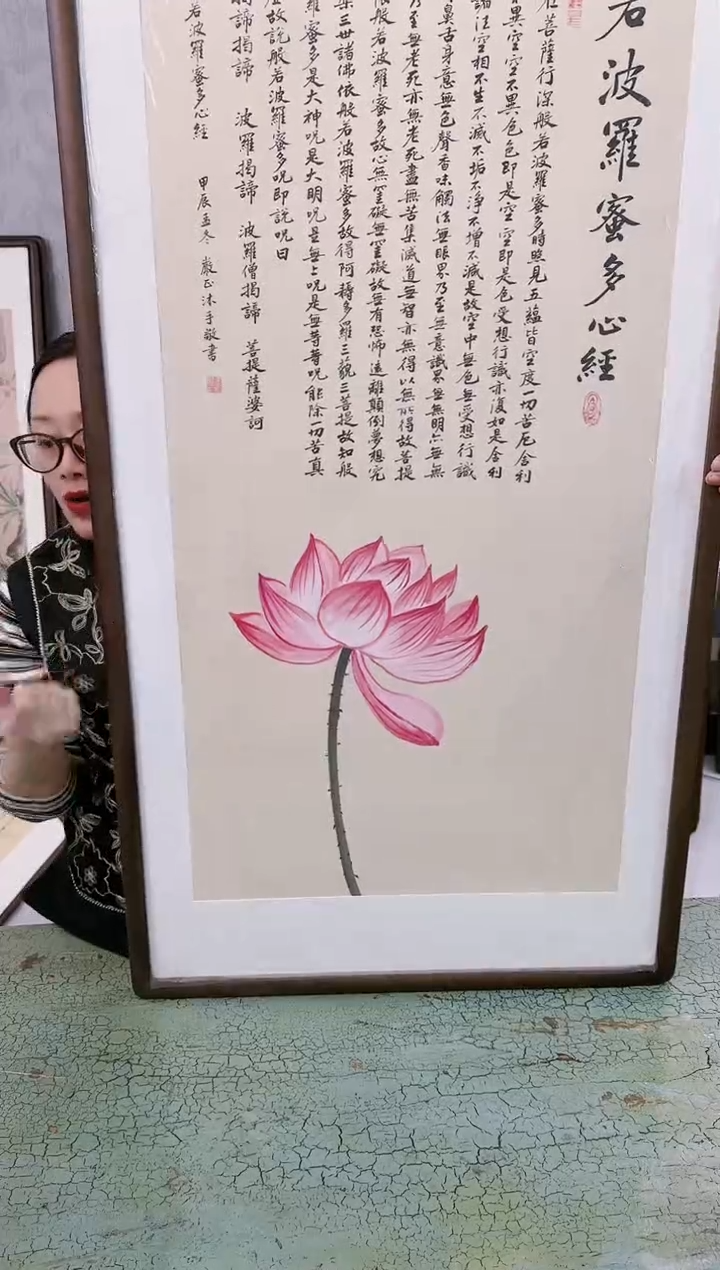 若波羅蜜多心經
在菩薩行深般若波羅蜜多時照見五蘊皆空度一切苦厄舍利
異空空不異色色即是空空即是色受想行識亦復如是舍利
諸法空相不生不滅不垢不淨不增不減是故空中無色無受想行識
鼻舌身意無色聲香味觸法無眼界乃至無意識界無無明亦無無
乃至無老死亦無老死盡無苦集滅道無智亦無得以無所得故菩提
依般若波羅蜜多故心無罣礙無罣礙故無有恐怖遠離顛倒夢想究
槃三世諸佛依般若波羅蜜多故得阿耨多羅三藐三菩提故知般
羅蜜多是大神咒是大明咒是無上咒是無等等咒能除一切苦真
虛故說般若波羅蜜多咒即說咒曰
揭諦揭諦 波羅揭諦 波羅僧揭諦 菩提薩婆訶
若波羅蜜多心經
甲辰孟冬 嚴正沐手敬書